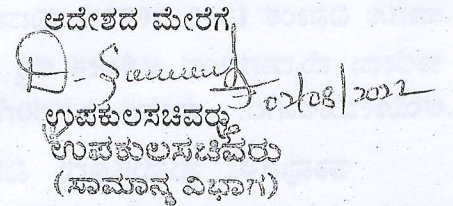 ಆದೇಶದ ಮೇರೆಗೆ,
02/08/2022
ಉಪಕುಲಸಚಿವರು
ಉಪಕುಲಸಚಿವರು
(ಸಾಮಾನ್ಯ ವಿಭಾಗ)